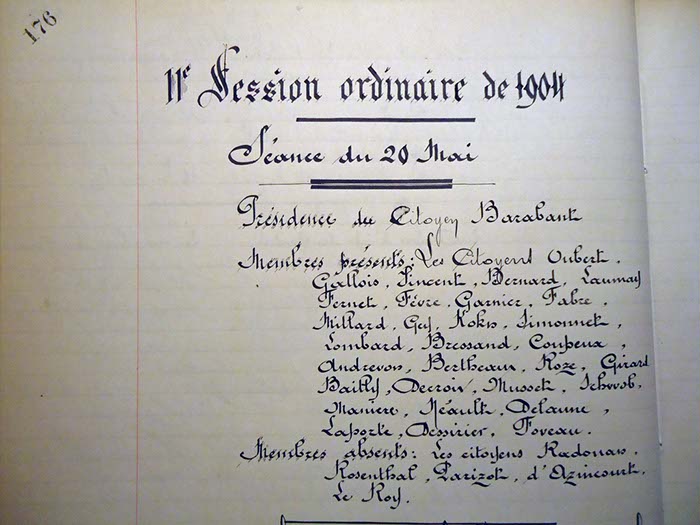 176
11e Session ordinaire de 1904
Séance du 20 Mai
Présidence du Citoyen Barabant
Membres présents: Les Citoyens Oubert,
Gallois, Vincent, Bernard, Launay
Fernet, Fèvre, Garnier, Fabre,
Millard, Guy, Kohn, Simonnet,
Lombard, Bressand, Coupeux,
Andrevon, Bertheaux, Roze, Girard
Bailly, Decroix, Musset, Schwob,
Manière, Néault, Delaune,
Laporte, Dessirier, Foveau.
Membres absents: Les citoyens Radouan,
Rosenthal, Parizot, d'Azincourt,
Le Roy.